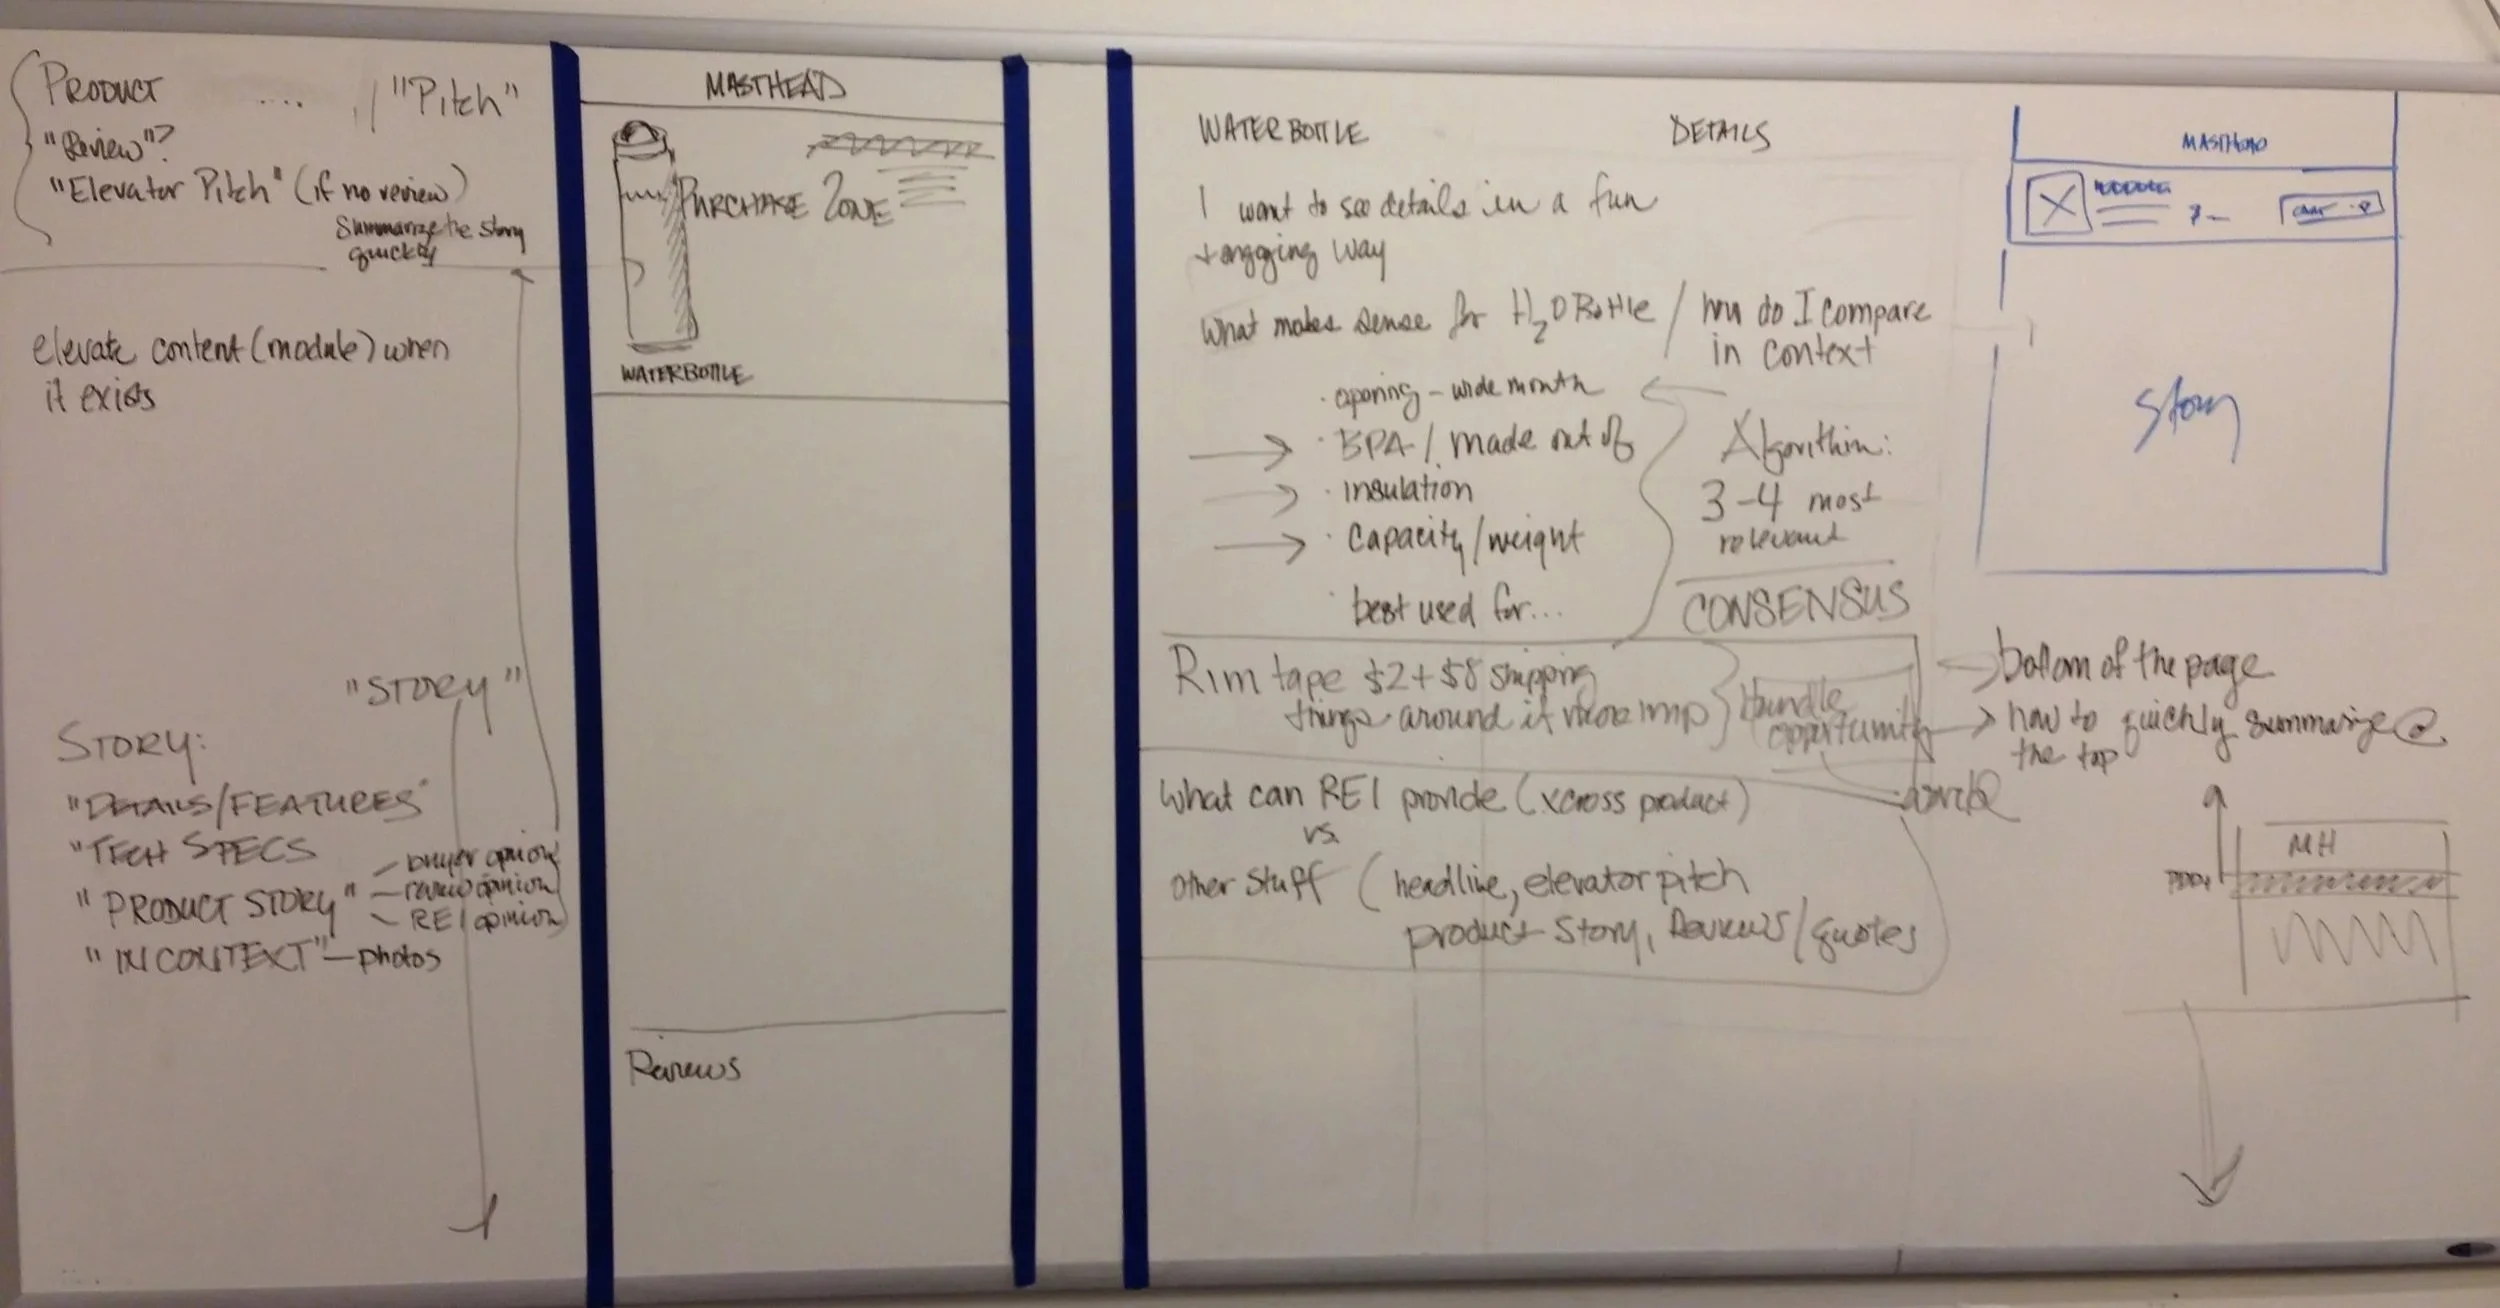 PRODUCT .... "Pitch"
"Review"?
"Elevator Pitch" (if no review)
Summarize the story
quickly
elevate content (module) when
it exists
"STORY"
STORY:
"DETAILS/FEATURES"
"TECH SPECS
"PRODUCT STORY"
buyer opinion
review opinion
REI opinion
"IN CONTEXT" — photos
MASTHEAD
PURCHASE ZONE
WATERBOTTLE
Reviews
WATERBOTTLE
DETAILS
I want to see details in a fun
+ engaging way
What makes sense for H2O Bottle / how do I compare
in context
· opening – wide mouth
· BPA / made out of
· insulation
· Capacity/weight
· best used for...
Algorithim:
3-4 most
relevant
CONSENSUS
Rim tape $2 + $8 shipping
things around it more imp
opportunity
What can REI provide (xcross product)
vs.
other stuff (headline, elevator pitch
product story, Reviews/quotes
MASTHEAD
Story
bottom of the page
how to quickly summarize @
the top
MH